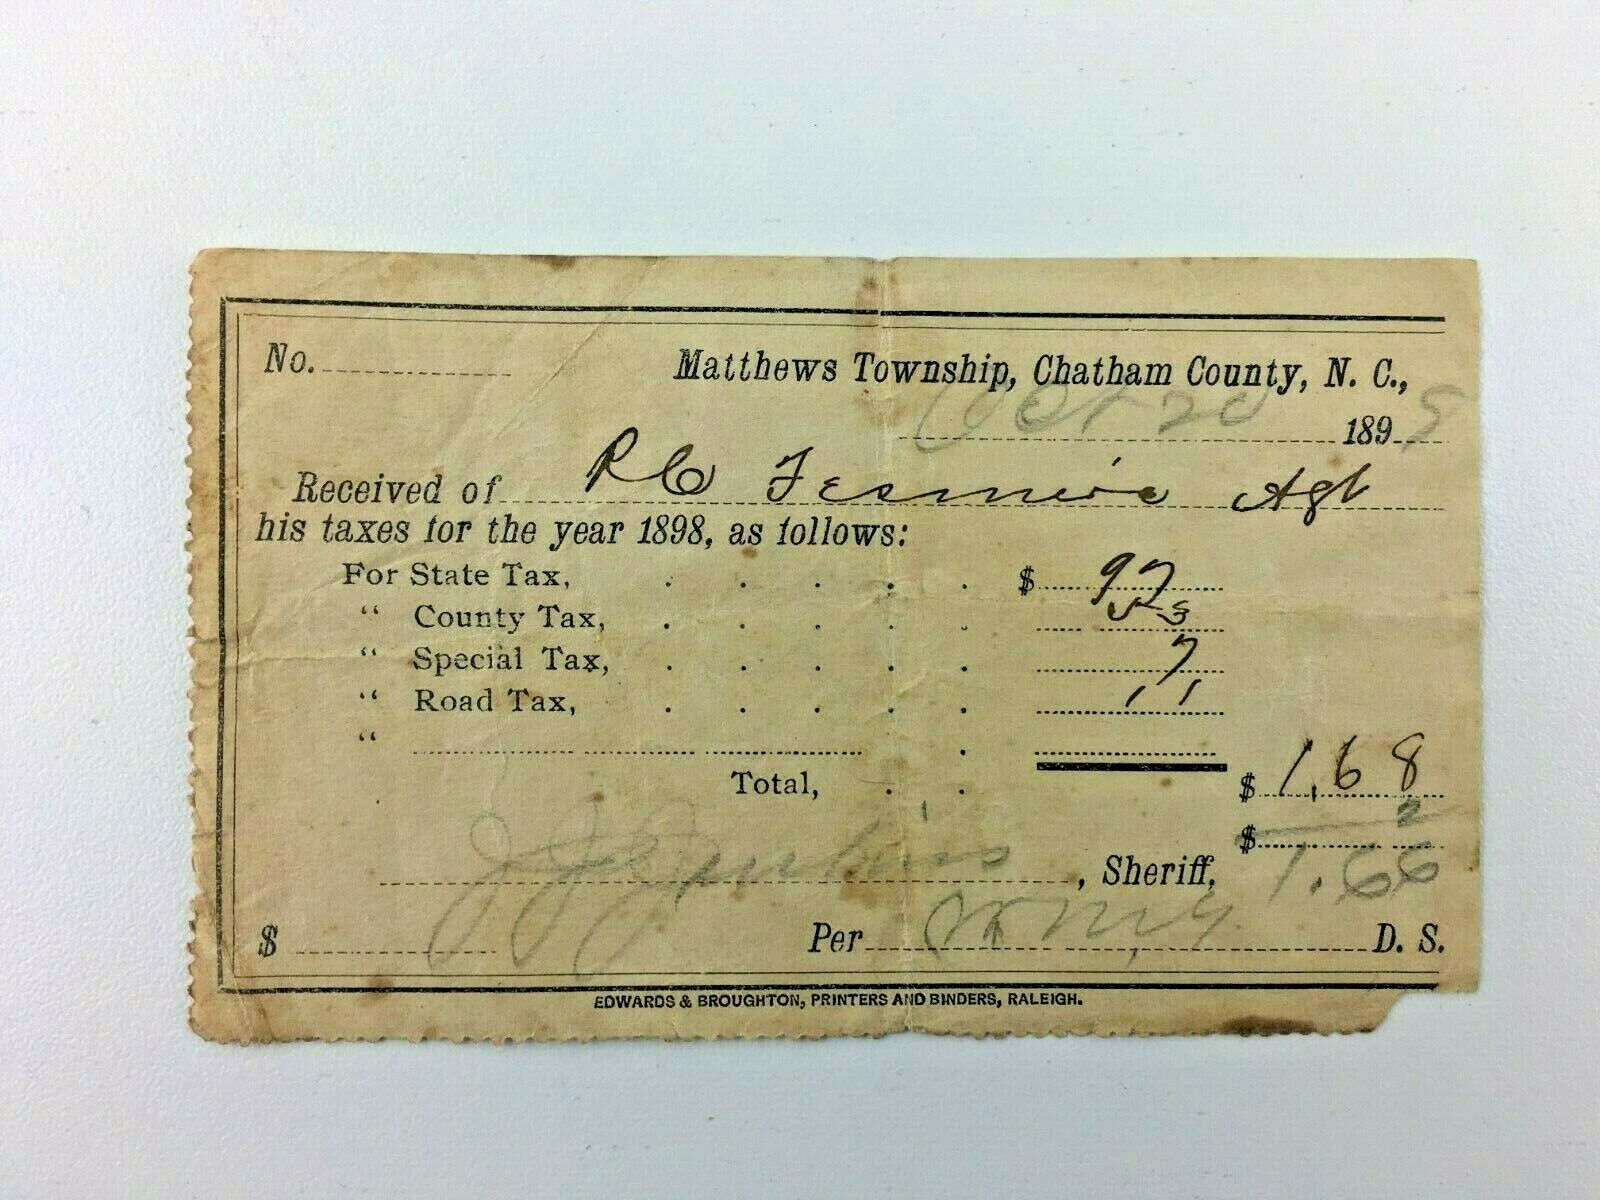 No.
Matthews Township, Chatham County, N. C.,
Oct 20 1898
Received of R C Fesmire Agt
his taxes for the year 1898, as follows:
For State Tax, . . . . . $ 97
" County Tax, . . . . . 53
" Special Tax, . . . . . 7
" Road Tax, . . . . . 11
" .
Total, . . $ 1.68
$ 2
J J Jenkins, Sheriff, 1.66
$ Per D. S.
EDWARDS & BROUGHTON, PRINTERS AND BINDERS, RALEIGH.